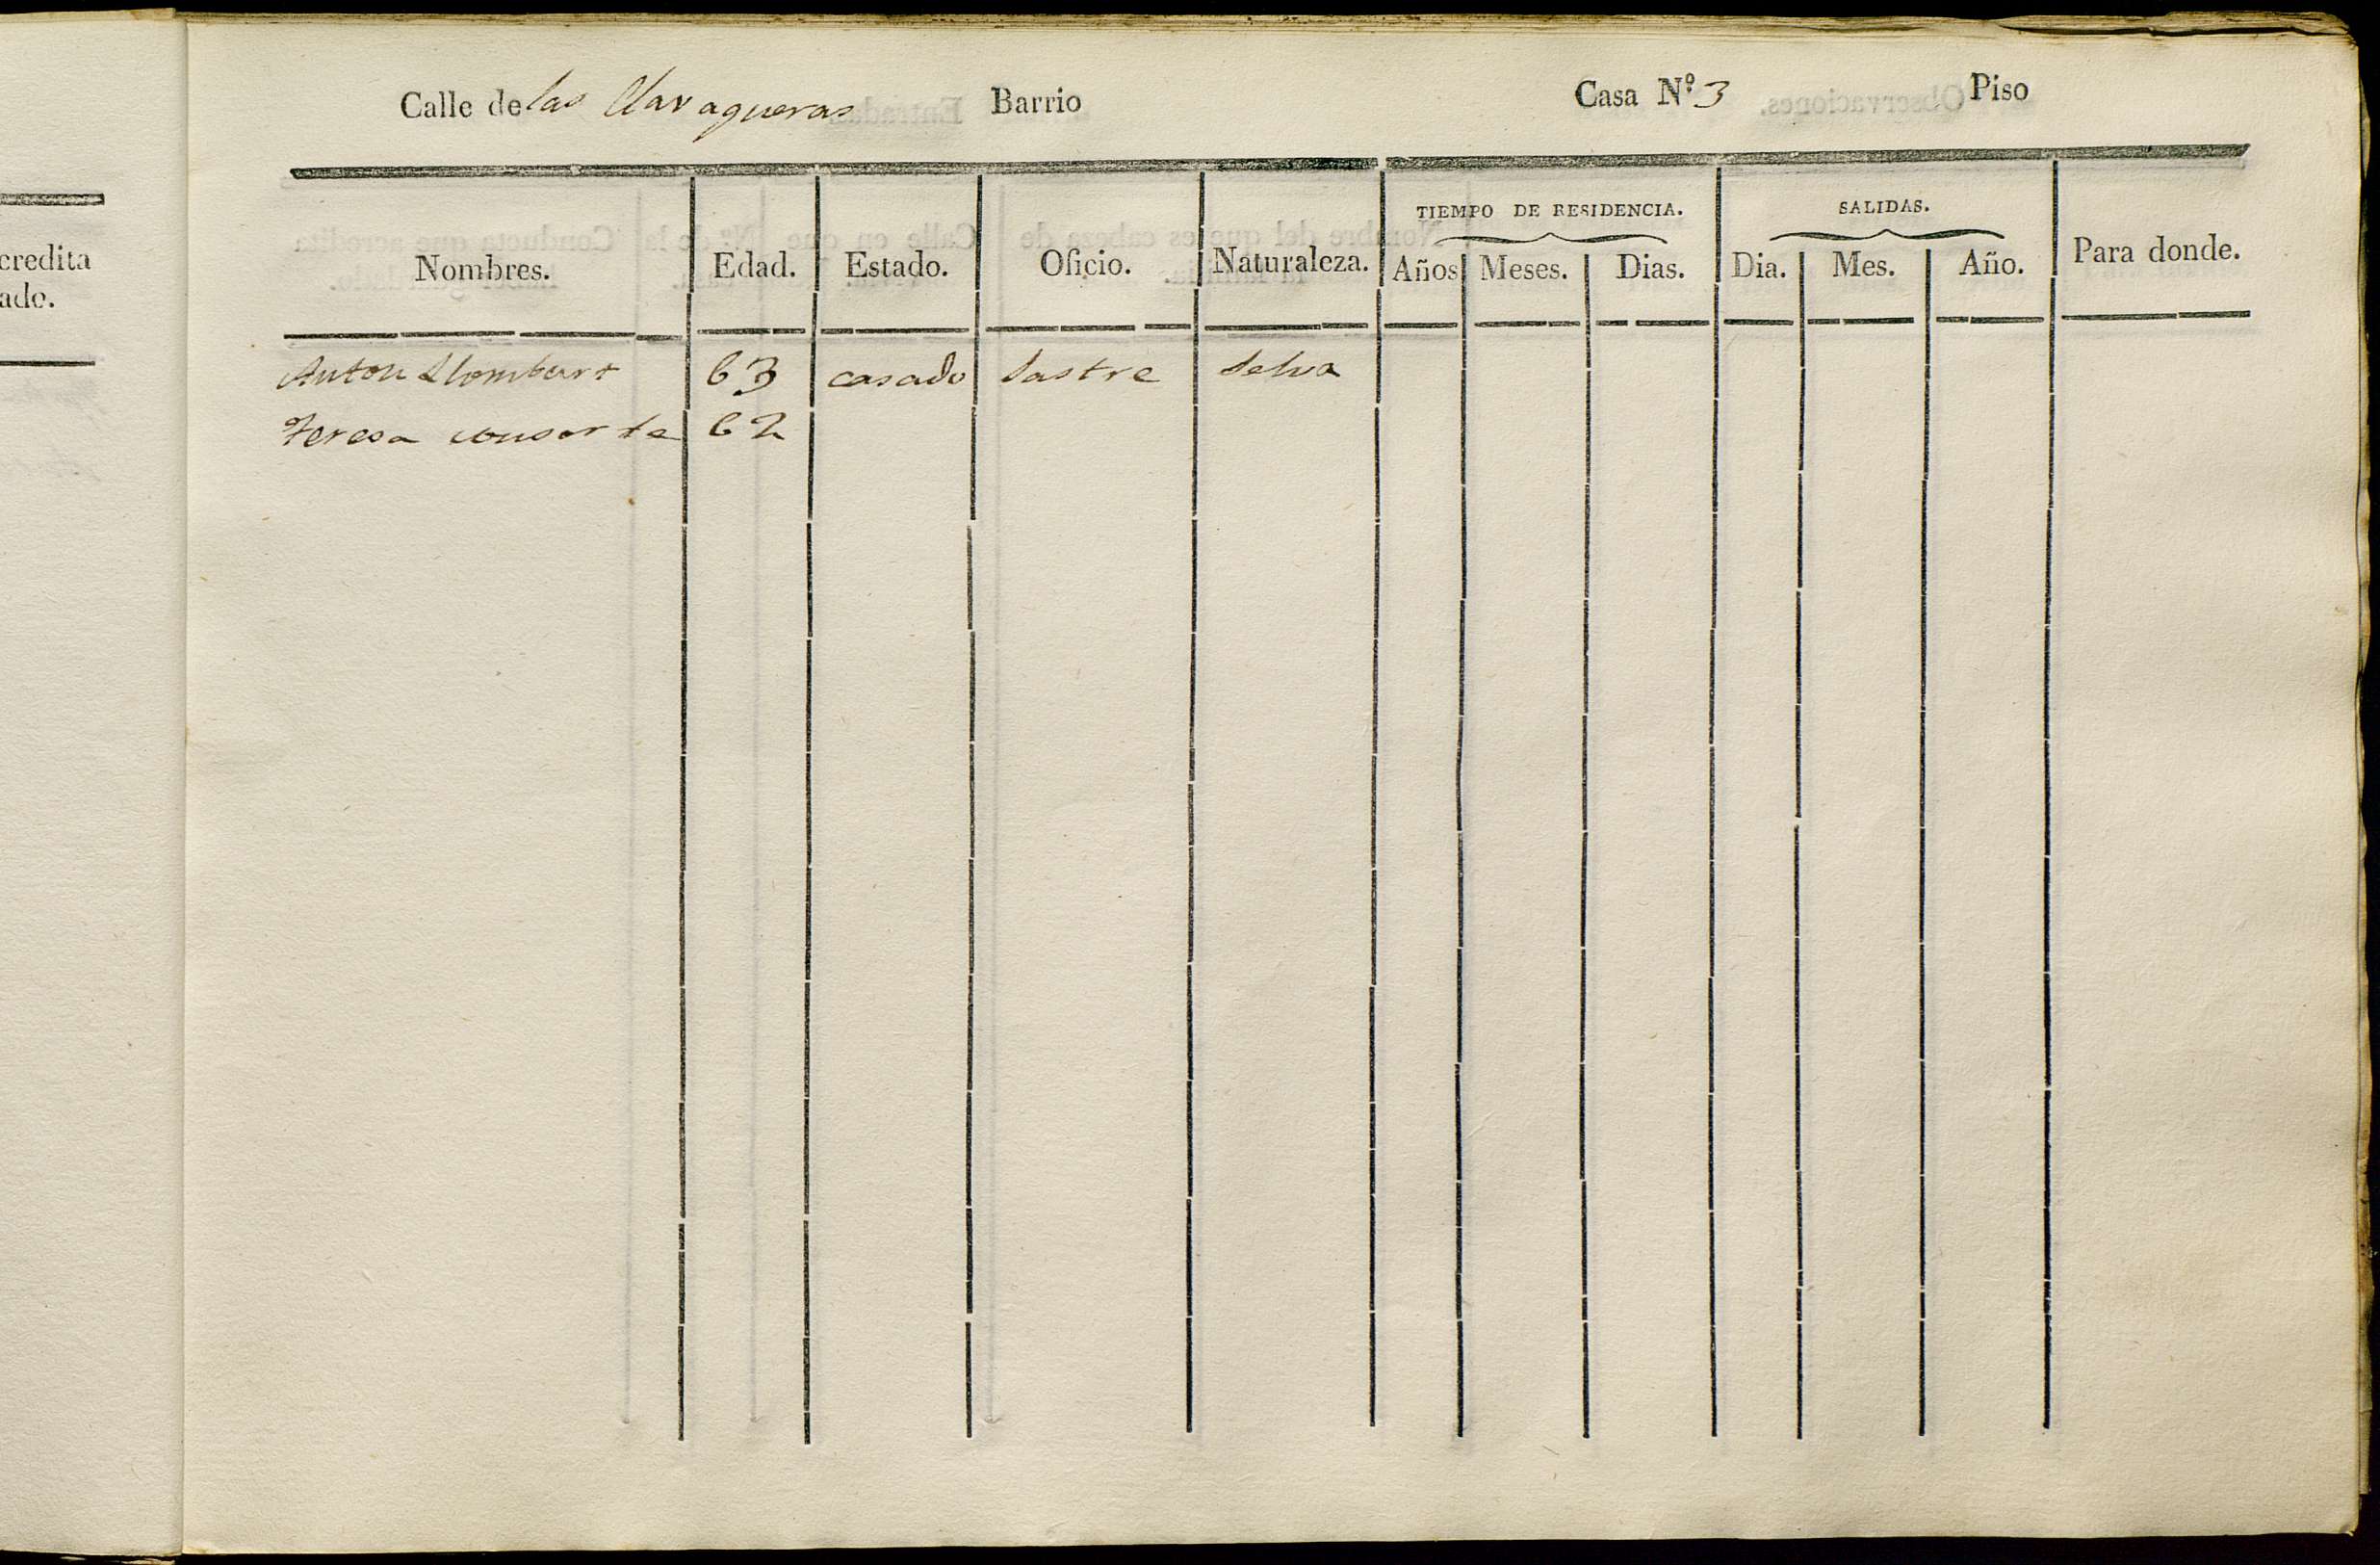 Calle de las Clavagueras Barrio Casa Nº 3 Piso
credita
ado.
TIEMPO DE RESIDENCIA. SALIDAS.
Nombres. Edad. Estado. Oficio. Naturaleza. Años Meses. Dias. Dia. Mes. Año. Para donde.
Anton Llombart 63 casado Sastre Selva
Teresa consorte 62